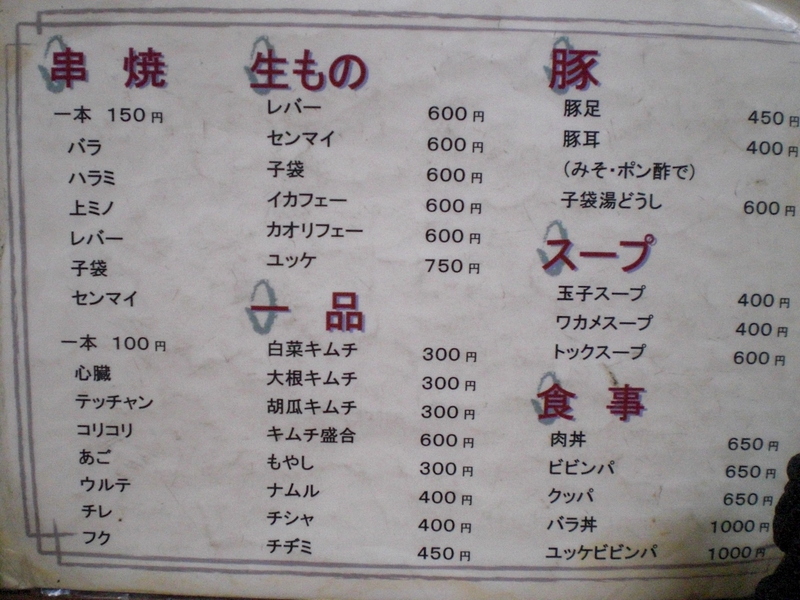 串焼
一本 150円
バラ
ハラミ
上ミノ
レバー
子袋
センマイ
一本 100円
心臓
テッチャン
コリコリ
あご
ウルテ
チレ
フク
生もの
レバー 600円
センマイ 600円
子袋 600円
イカフェー 600円
カオリフェー 600円
ユッケ 750円
一品
白菜キムチ 300円
大根キムチ 300円
胡瓜キムチ 300円
キムチ盛合 600円
もやし 300円
ナムル 400円
チシャ 400円
チヂミ 450円
豚
豚足 450円
豚耳 400円
（みそ・ポン酢で）
子袋湯どうし 600円
スープ
玉子スープ 400円
ワカメスープ 400円
トックスープ 600円
食事
肉丼 650円
ビビンパ 650円
クッパ 650円
バラ丼 1000円
ユッケビビンパ 1000円